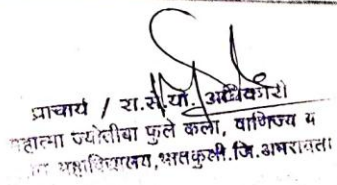 प्राचार्य / रा.से.यो. अधिकारी
महात्मा ज्योतीबा फुले कला, वाणिज्य व
महाविद्यालय, भातकुली. जि. अमरावती